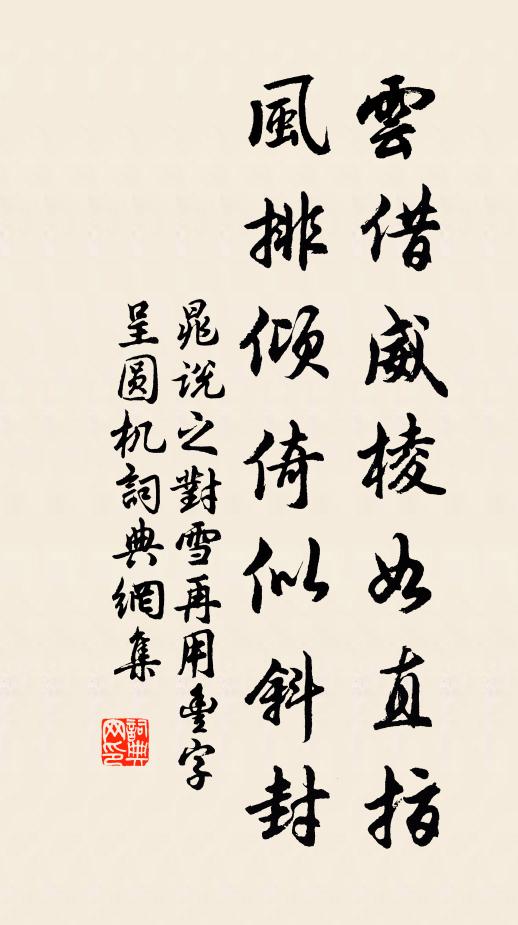 雲借威棱如直指
風排傾倚似斜封
晁說之對雪再用豐字
呈圓机詞典網集
詞典网印